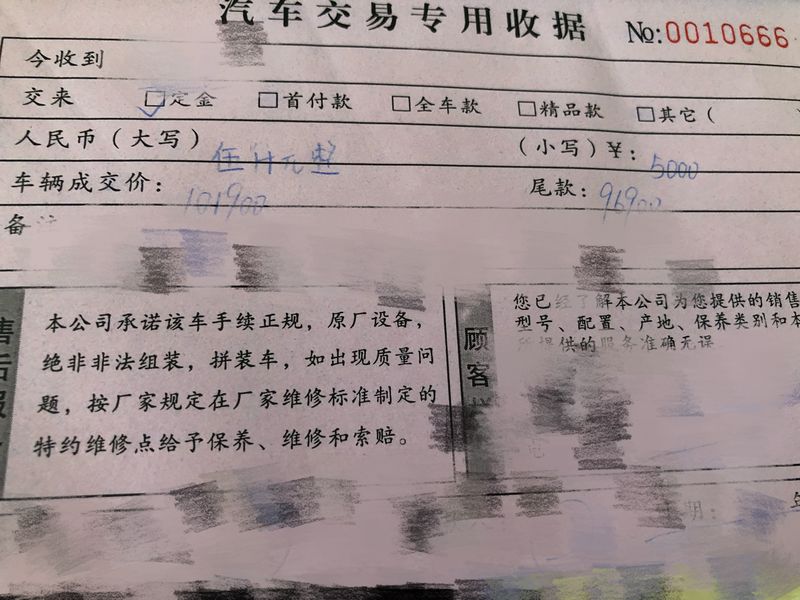 汽车交易专用收据 №:0010666
今收到
交来 ☑定金 □首付款 □全车款 □精品款 □其它(
人民币(大写) 伍仟元整 (小写)¥: 5000
车辆成交价: 101900 尾款: 96900
备
售后服
本公司承诺该车手续正规，原厂设备，
绝非非法组装，拼装车，如出现质量问
题，按厂家规定在厂家维修标准制定的
特约维修点给予保养、维修和索赔。
顾客
您已经了解本公司为您提供的销售
型号、配置、产地、保养类别和本
所提供的服务准确无误
期: